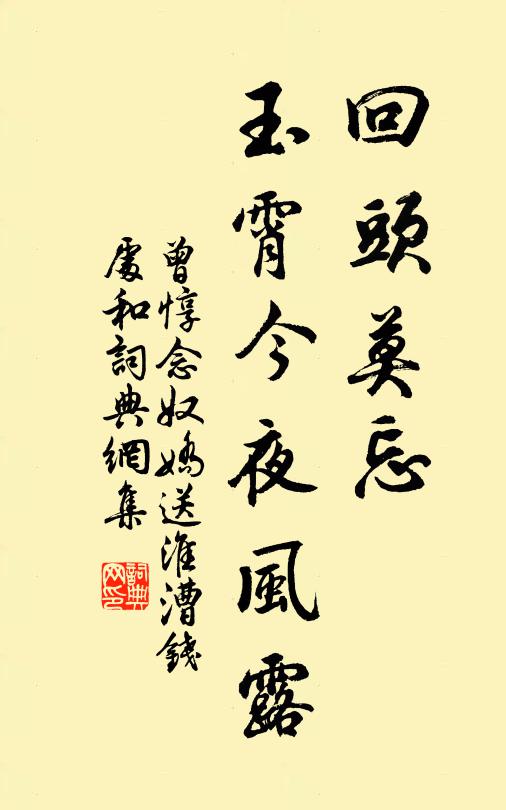 回頭莫忘
玉霄今夜風露
曾惇念奴嬌送淮漕錢
處和詞典網集
詞典网印